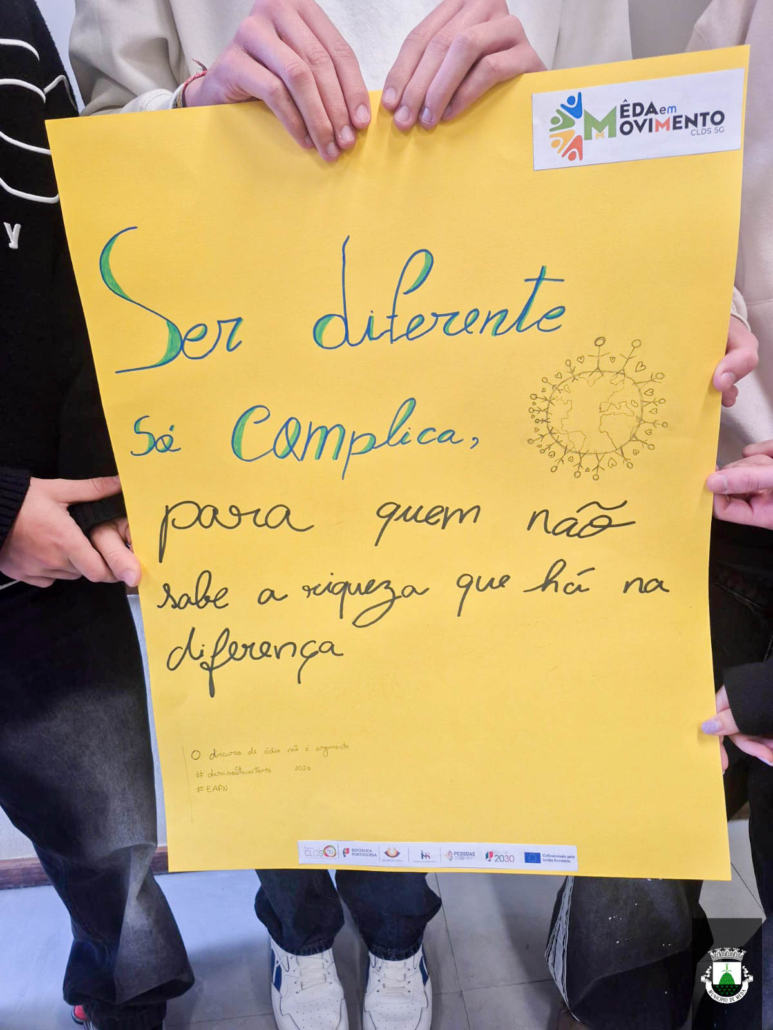 MÊDA em
MOVIMENTO
CLDS 5G
Ser diferente
só complica,
para quem não
sabe a riqueza que há na
diferença
O discurso de ódio não é argumento
2023
# EAPN
CLDS
REPÚBLICA
PORTUGUESA
PESSOAS
2030
Cofinanciado pela
União Europeia
MUNICÍPIO DE MÊDA
y